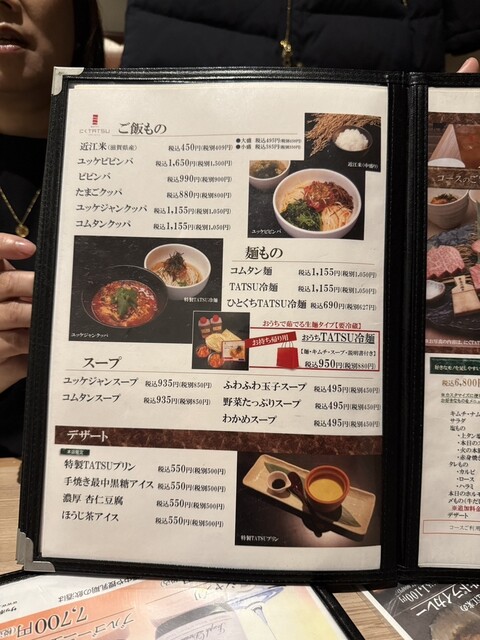 CITATSU ご飯もの
●大盛 税込495円(税別450円)
●小盛 税込385円(税別350円)
近江米(滋賀県産) 税込450円(税別409円)
ユッケビビンバ 税込1,650円(税別1,500円)
ビビンバ 税込990円(税別900円)
たまごクッパ 税込880円(税別800円)
ユッケジャンクッパ 税込1,155円(税別1,050円)
コムタンクッパ 税込1,155円(税別1,050円)
近江米(中盛り)
ユッケビビンバ
特製TATSU冷麺
ユッケジャンクッパ
麺もの
コムタン麺 税込1,155円(税別1,050円)
TATSU冷麺 税込1,155円(税別1,050円)
ひとくちTATSU冷麺 税込690円(税別627円)
おうちで茹でる生麺タイプ【要冷蔵】
お持ち帰り用
おうちTATSU冷麺
【麺・キムチ・スープ・説明書付き】
税込950円(税別880円)
スープ
ユッケジャンスープ 税込935円(税別850円)
コムタンスープ 税込935円(税別850円)
ふわふわ玉子スープ 税込495円(税別450円)
野菜たっぷりスープ 税込495円(税別450円)
わかめスープ 税込495円(税別450円)
デザート
特製TATSUプリン 税込550円(税別500円)
手焼き最中黒糖アイス 税込550円(税別500円)
濃厚 杏仁豆腐 税込550円(税別500円)
ほうじ茶アイス 税込550円(税別500円)
特製TATSUプリン
コースのご
税込6,800円
キムチ・ナム
サラダ
塩もの
・上タン塩
・本日の
・火の本
・赤身
タレもの
・カルビ
・ロース
・ハラミ
本日のホルモ
〆もの(牛だ
※追加料金
デザート
コースご利用
7,700円
ドライカレー